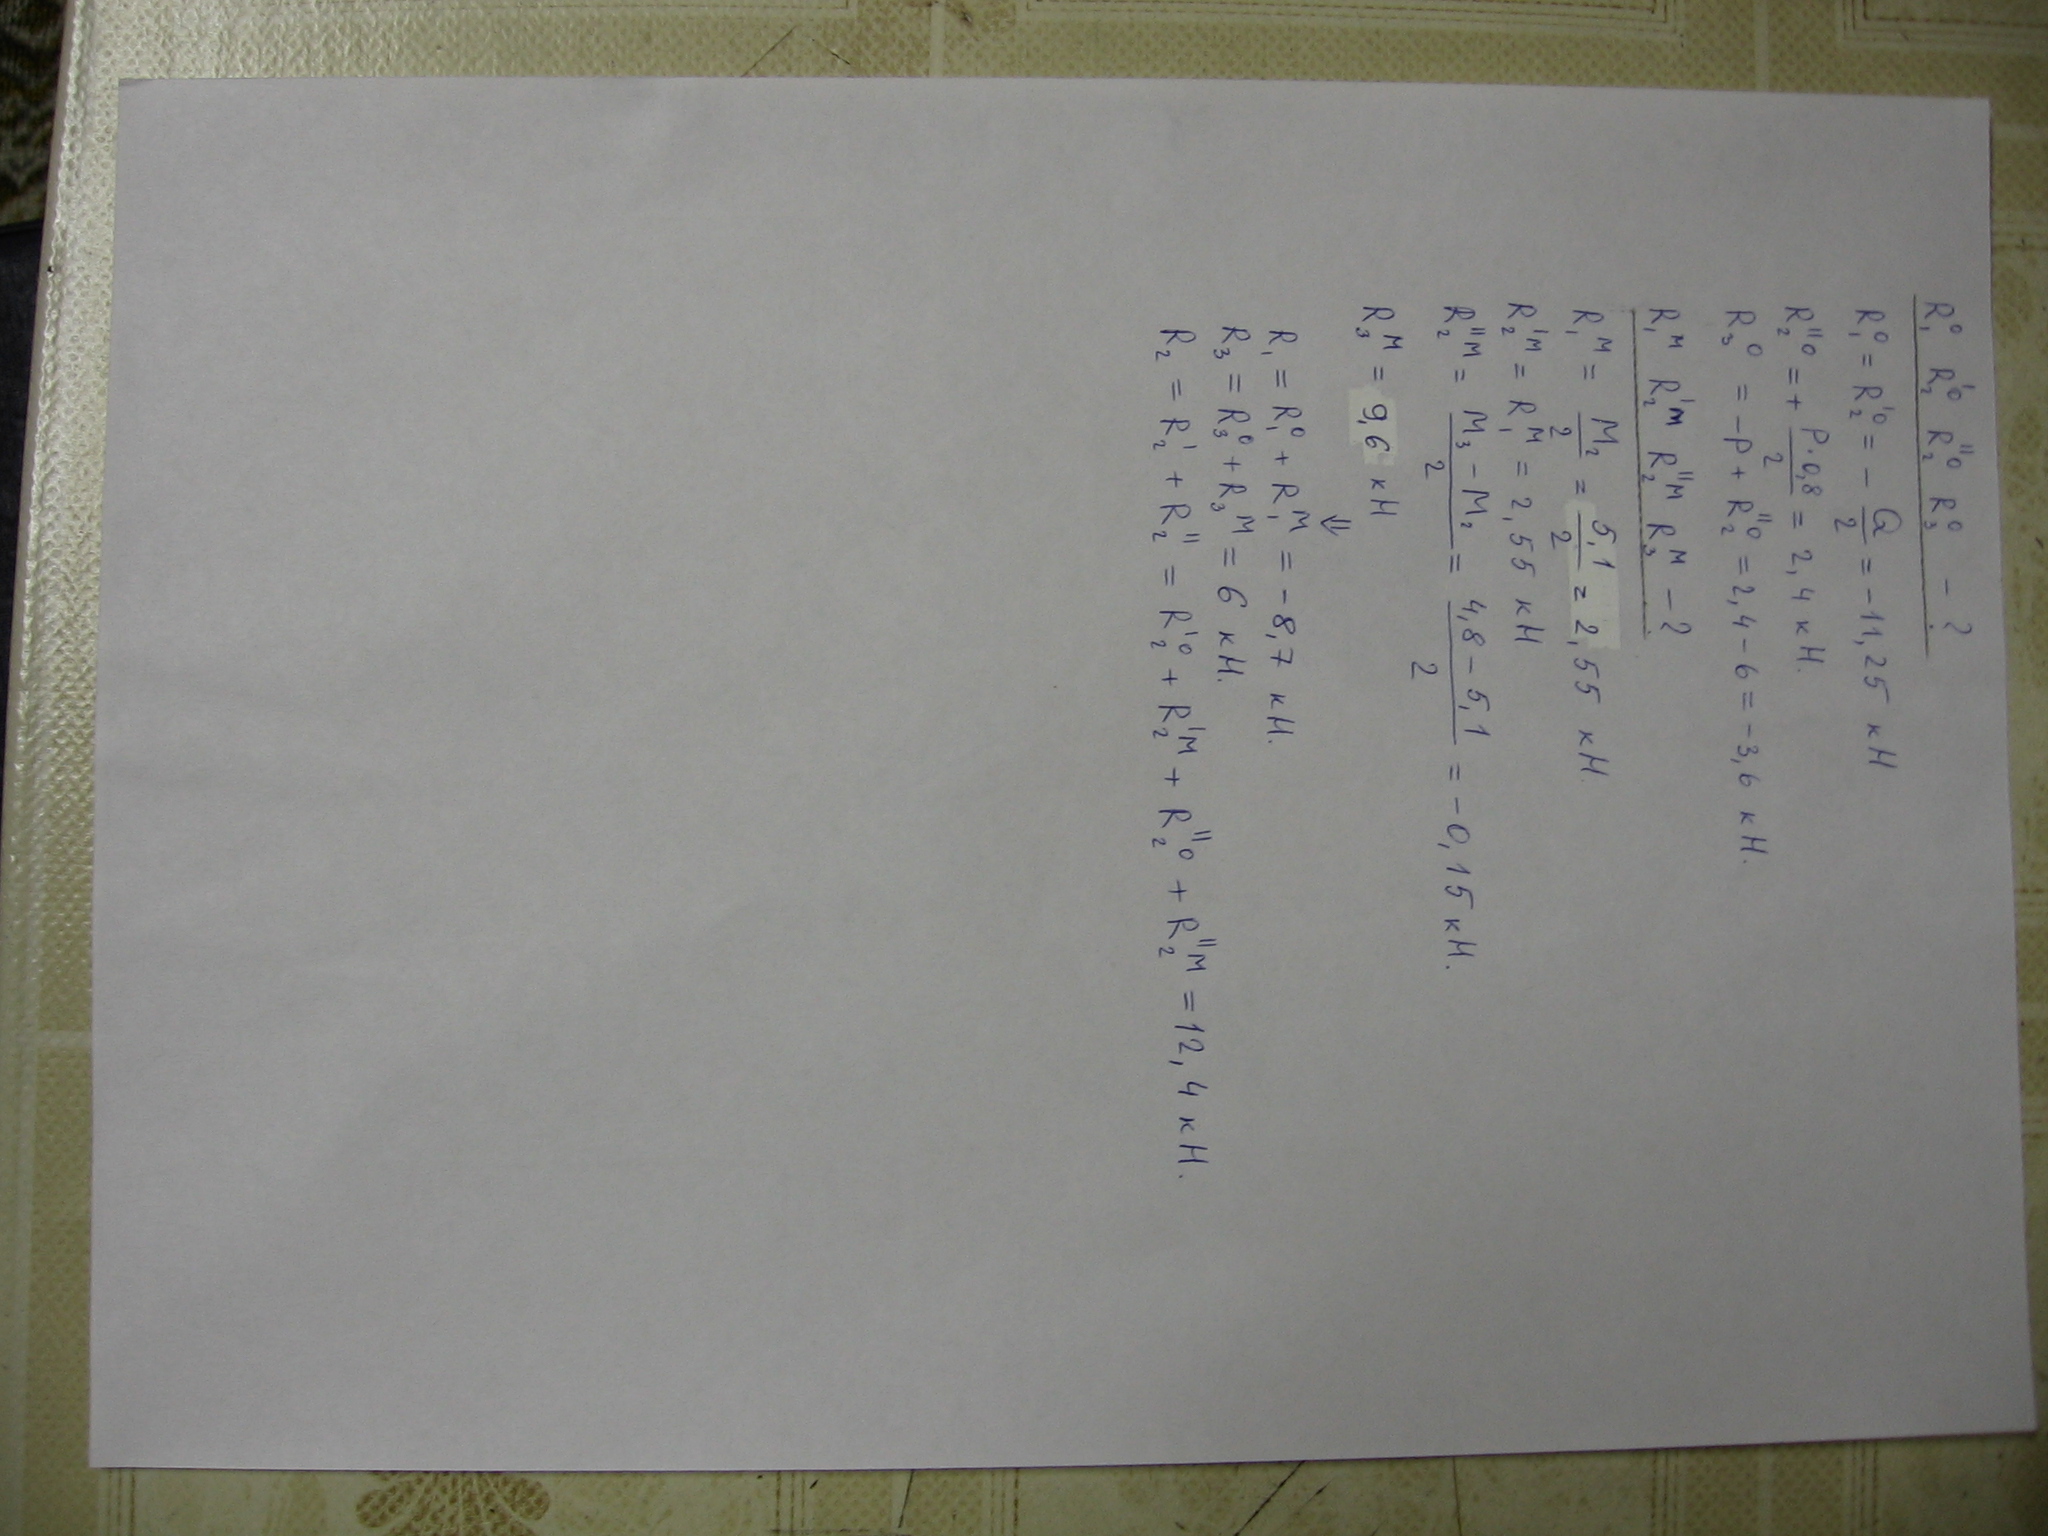 R₁⁰ R₂'⁰ R₂"⁰ R₃⁰ - ?
R₁⁰ = R₂'⁰ = - Q/2 = -11,25 кН
R₂"⁰ = + P·0,8/2 = 2,4 кН.
R₃⁰ = -P + R₂"⁰ = 2,4 - 6 = -3,6 кН.
R₁ᴹ R₂'ᴹ R₂"ᴹ R₃ᴹ - ?
R₁ᴹ = M₂/2 = 5,1/2 = 2,55 кН.
R₂'ᴹ = R₁ᴹ = 2,55 кН
R₂"ᴹ = (M₃ - M₂)/2 = (4,8 - 5,1)/2 = -0,15 кН.
R₃ᴹ = 9,6 кН
⇓
R₁ = R₁⁰ + R₁ᴹ = -8,7 кН.
R₃ = R₃⁰ + R₃ᴹ = 6 кН.
R₂ = R₂' + R₂" = R₂'⁰ + R₂'ᴹ + R₂"⁰ + R₂"ᴹ = 12,4 кН.